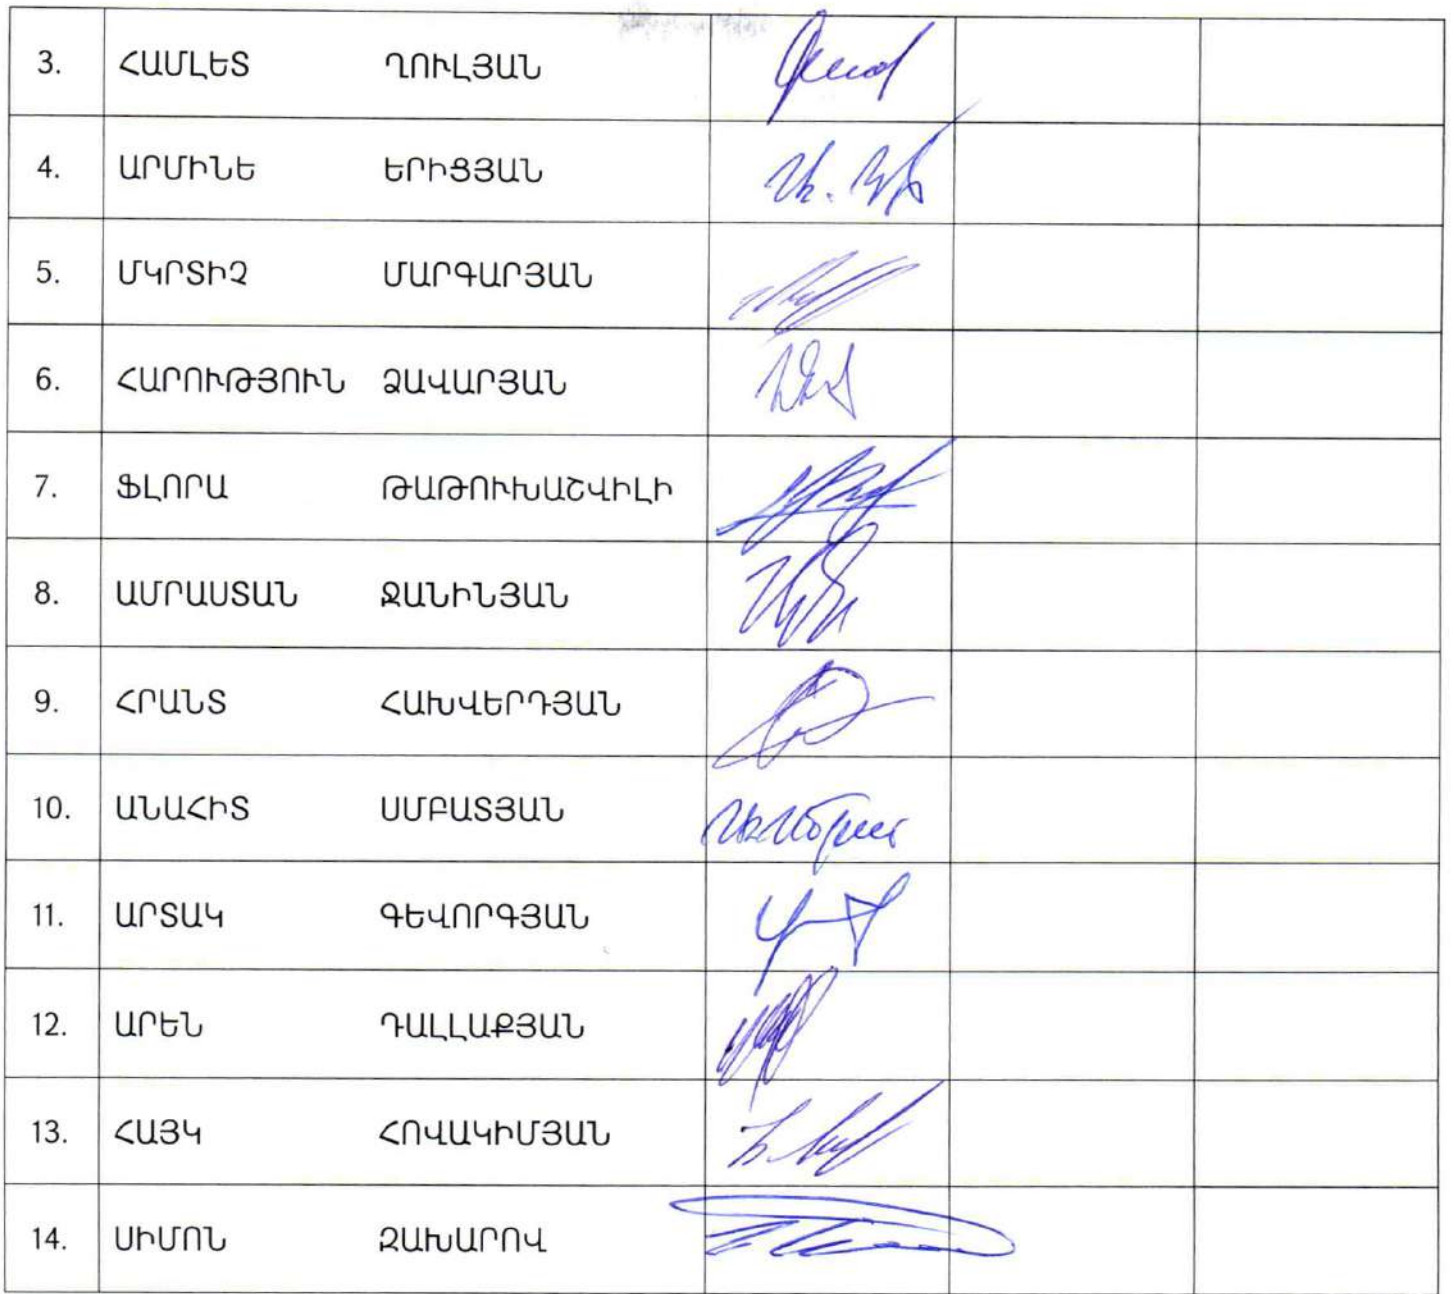 3. ՀԱՄԼԵՏ ՂՈՒԼՅԱՆ
4. ԱՐՄԻՆԵ ԵՐԻՑՅԱՆ
5. ՄԿՐՏԻՉ ՄԱՐԳԱՐՅԱՆ
6. ՀԱՐՈՒԹՅՈՒՆ ՁԱՎԱՐՅԱՆ
7. ՖԼՈՐԱ ԹԱԹՈՒԽԱՇՎԻԼԻ
8. ԱՄՐԱՍՏԱՆ ՋԱՆԻՆՅԱՆ
9. ՀՐԱՆՏ ՀԱԽՎԵՐԴՅԱՆ
10. ԱՆԱՀԻՏ ՍՄԲԱՏՅԱՆ
11. ԱՐՏԱԿ ԳԵՎՈՐԳՅԱՆ
12. ԱՐԵՆ ԴԱԼԼԱՔՅԱՆ
13. ՀԱՅԿ ՀՈՎԱԿԻՄՅԱՆ
14. ՍԻՄՈՆ ԶԱԽԱՐՈՎ